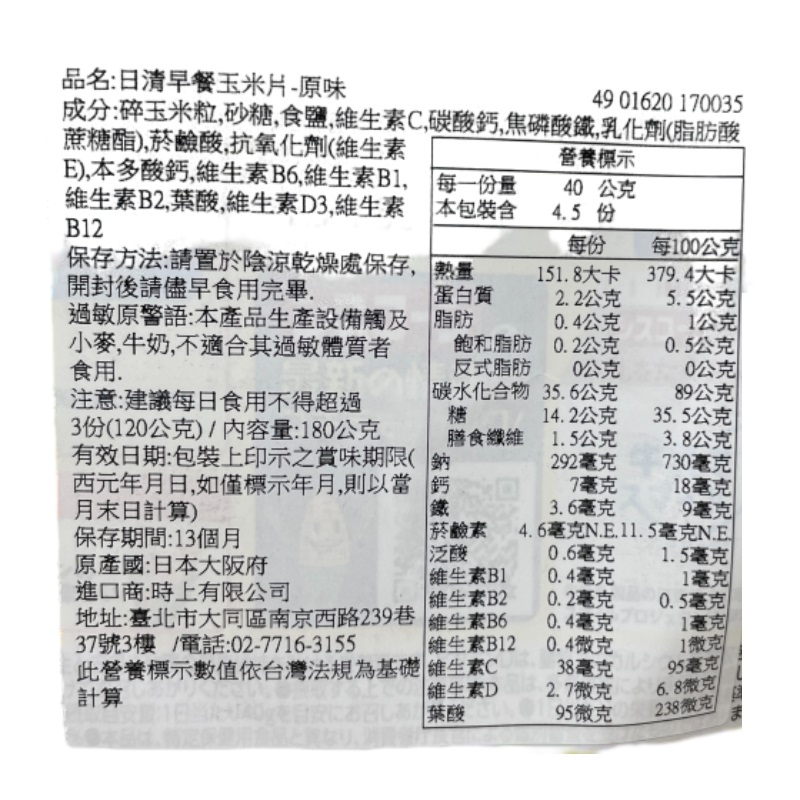 品名:日清早餐玉米片-原味
49 01620 170035
成分:碎玉米粒,砂糖,食鹽,維生素C,碳酸鈣,焦磷酸鐵,乳化劑(脂肪酸
蔗糖酯),菸鹼酸,抗氧化劑(維生素
E),本多酸鈣,維生素B6,維生素B1,
維生素B2,葉酸,維生素D3,維生素
B12
保存方法:請置於陰涼乾燥處保存,
開封後請儘早食用完畢.
過敏原警語:本產品生產設備觸及
小麥,牛奶,不適合其過敏體質者
食用.
注意:建議每日食用不得超過
3份(120公克) / 內容量:180公克
有效日期:包裝上印示之賞味期限(
西元年月日,如僅標示年月,則以當
月末日計算)
保存期間:13個月
原產國:日本大阪府
進口商:時上有限公司
地址:臺北市大同區南京西路239巷
37號3樓 /電話:02-7716-3155
此營養標示數值依台灣法規為基礎
計算
營養標示
每一份量 40 公克
本包裝含 4.5 份
每份 每100公克
熱量 151.8大卡 379.4大卡
蛋白質 2.2公克 5.5公克
脂肪 0.4公克 1公克
飽和脂肪 0.2公克 0.5公克
反式脂肪 0公克 0公克
碳水化合物 35.6公克 89公克
糖 14.2公克 35.5公克
膳食纖維 1.5公克 3.8公克
鈉 292毫克 730毫克
鈣 7毫克 18毫克
鐵 3.6毫克 9毫克
菸鹼素 4.6毫克N.E.11.5毫克N.E.
泛酸 0.6毫克 1.5毫克
維生素B1 0.4毫克 1毫克
維生素B2 0.2毫克 0.5毫克
維生素B6 0.4毫克 1毫克
維生素B12 0.4微克 1微克
維生素C 38毫克 95毫克
維生素D 2.7微克 6.8微克
葉酸 95微克 238微克